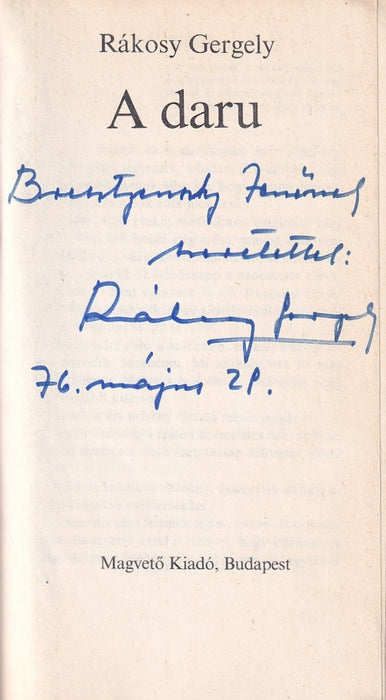 Rákosy Gergely
A daru
Jenőnek
szeretettel:
Rákosy Gergely
76. május 28.
Magvető Kiadó, Budapest